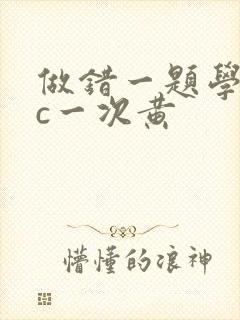 做錯一題學
c一次黃
懵懂的浪神